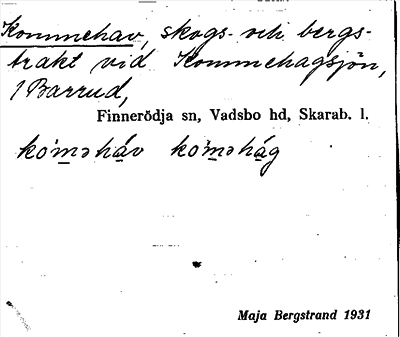 Kommehav, skogs- och bergs-
trakt vid Kommehagsjön,
1 Barrud,
Finnerödja sn, Vadsbo hd, Skarab. l.
ko'm̲əha̲v ko'm̲əha̲g
Maja Bergstrand 1931